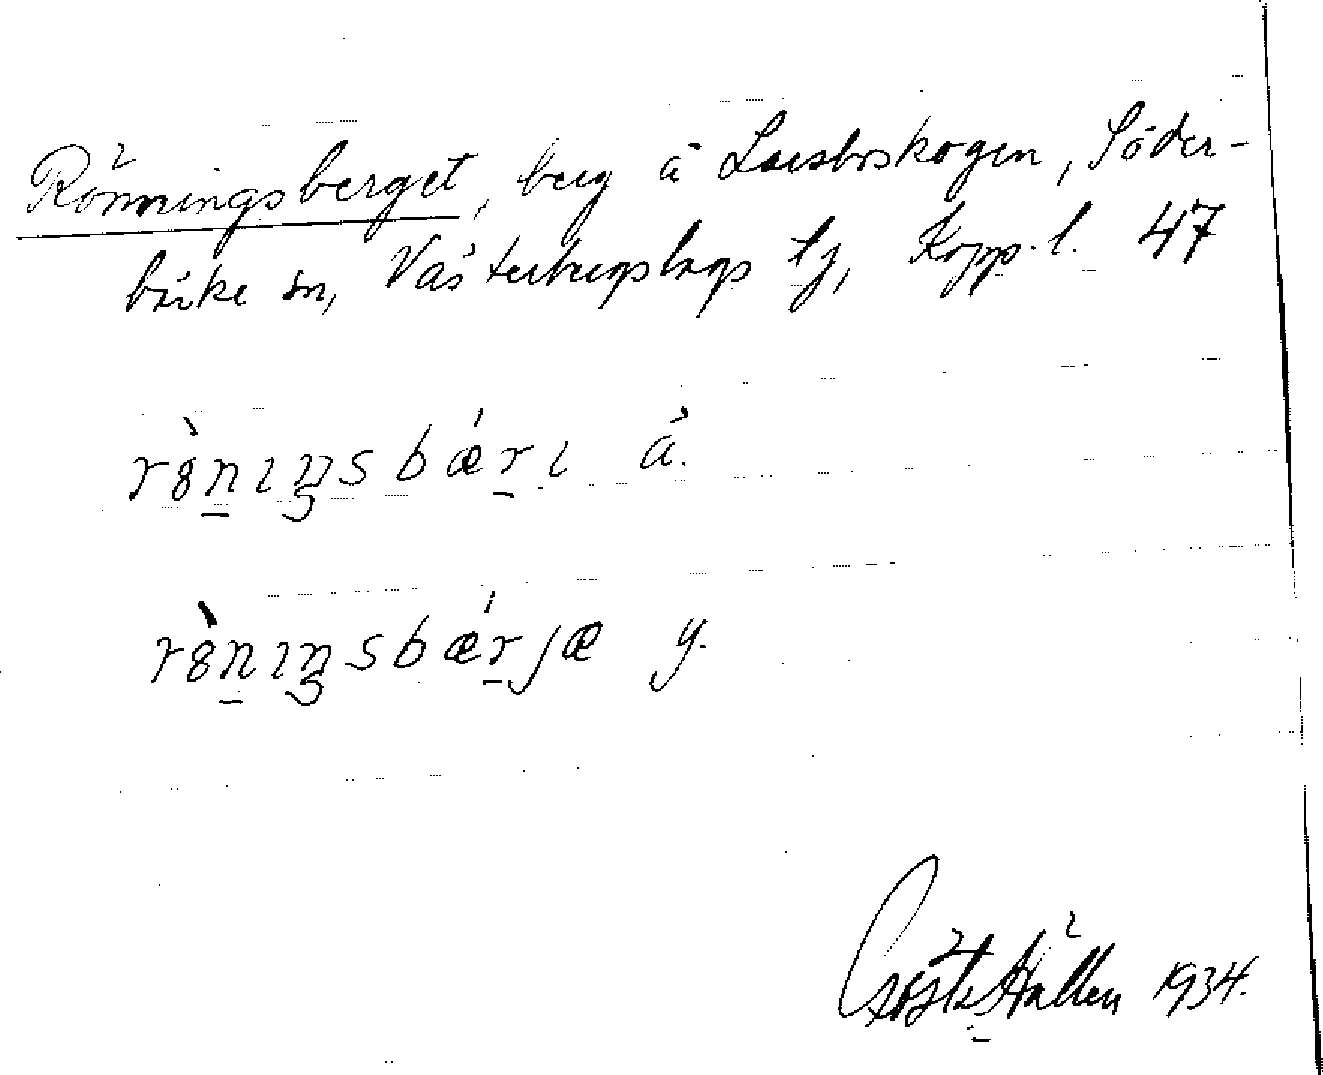 Rönningsberget, berg å Larsboskogen, Söder-
bärke sn, Västerbergslags tj, Kopp. l. 47
rö̀niŋsbǽri ä.
rö̀niŋsbǽrjæ y.
Gösta Hallen 1934.